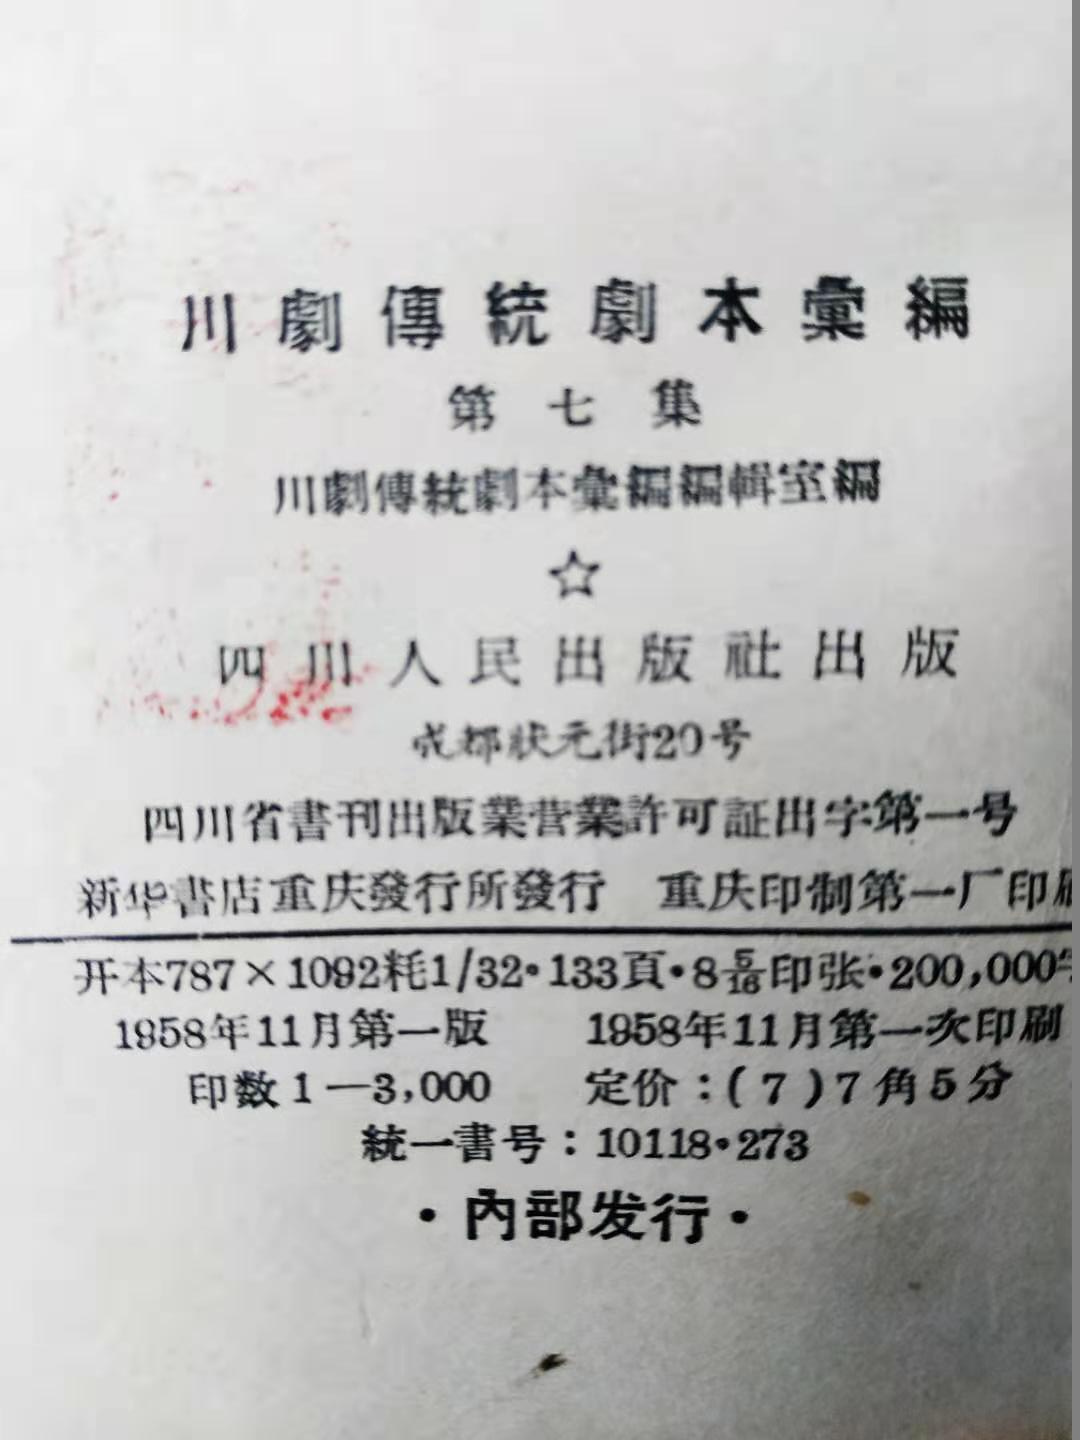 川劇傳統劇本彙編
第七集
川劇傳統劇本彙編編輯室編
☆
四川人民出版社出版
成都狀元街20号
四川省書刊出版業营業許可証出字第一号
新华書店重庆發行所發行 重庆印制第一厂印刷
开本787×1092耗1/32·133頁·8 5/16印张·200,000字
1958年11月第一版 1958年11月第一次印刷
印数1—3,000 定价:(7)7角5分
統一書号:10118·273
·內部发行·